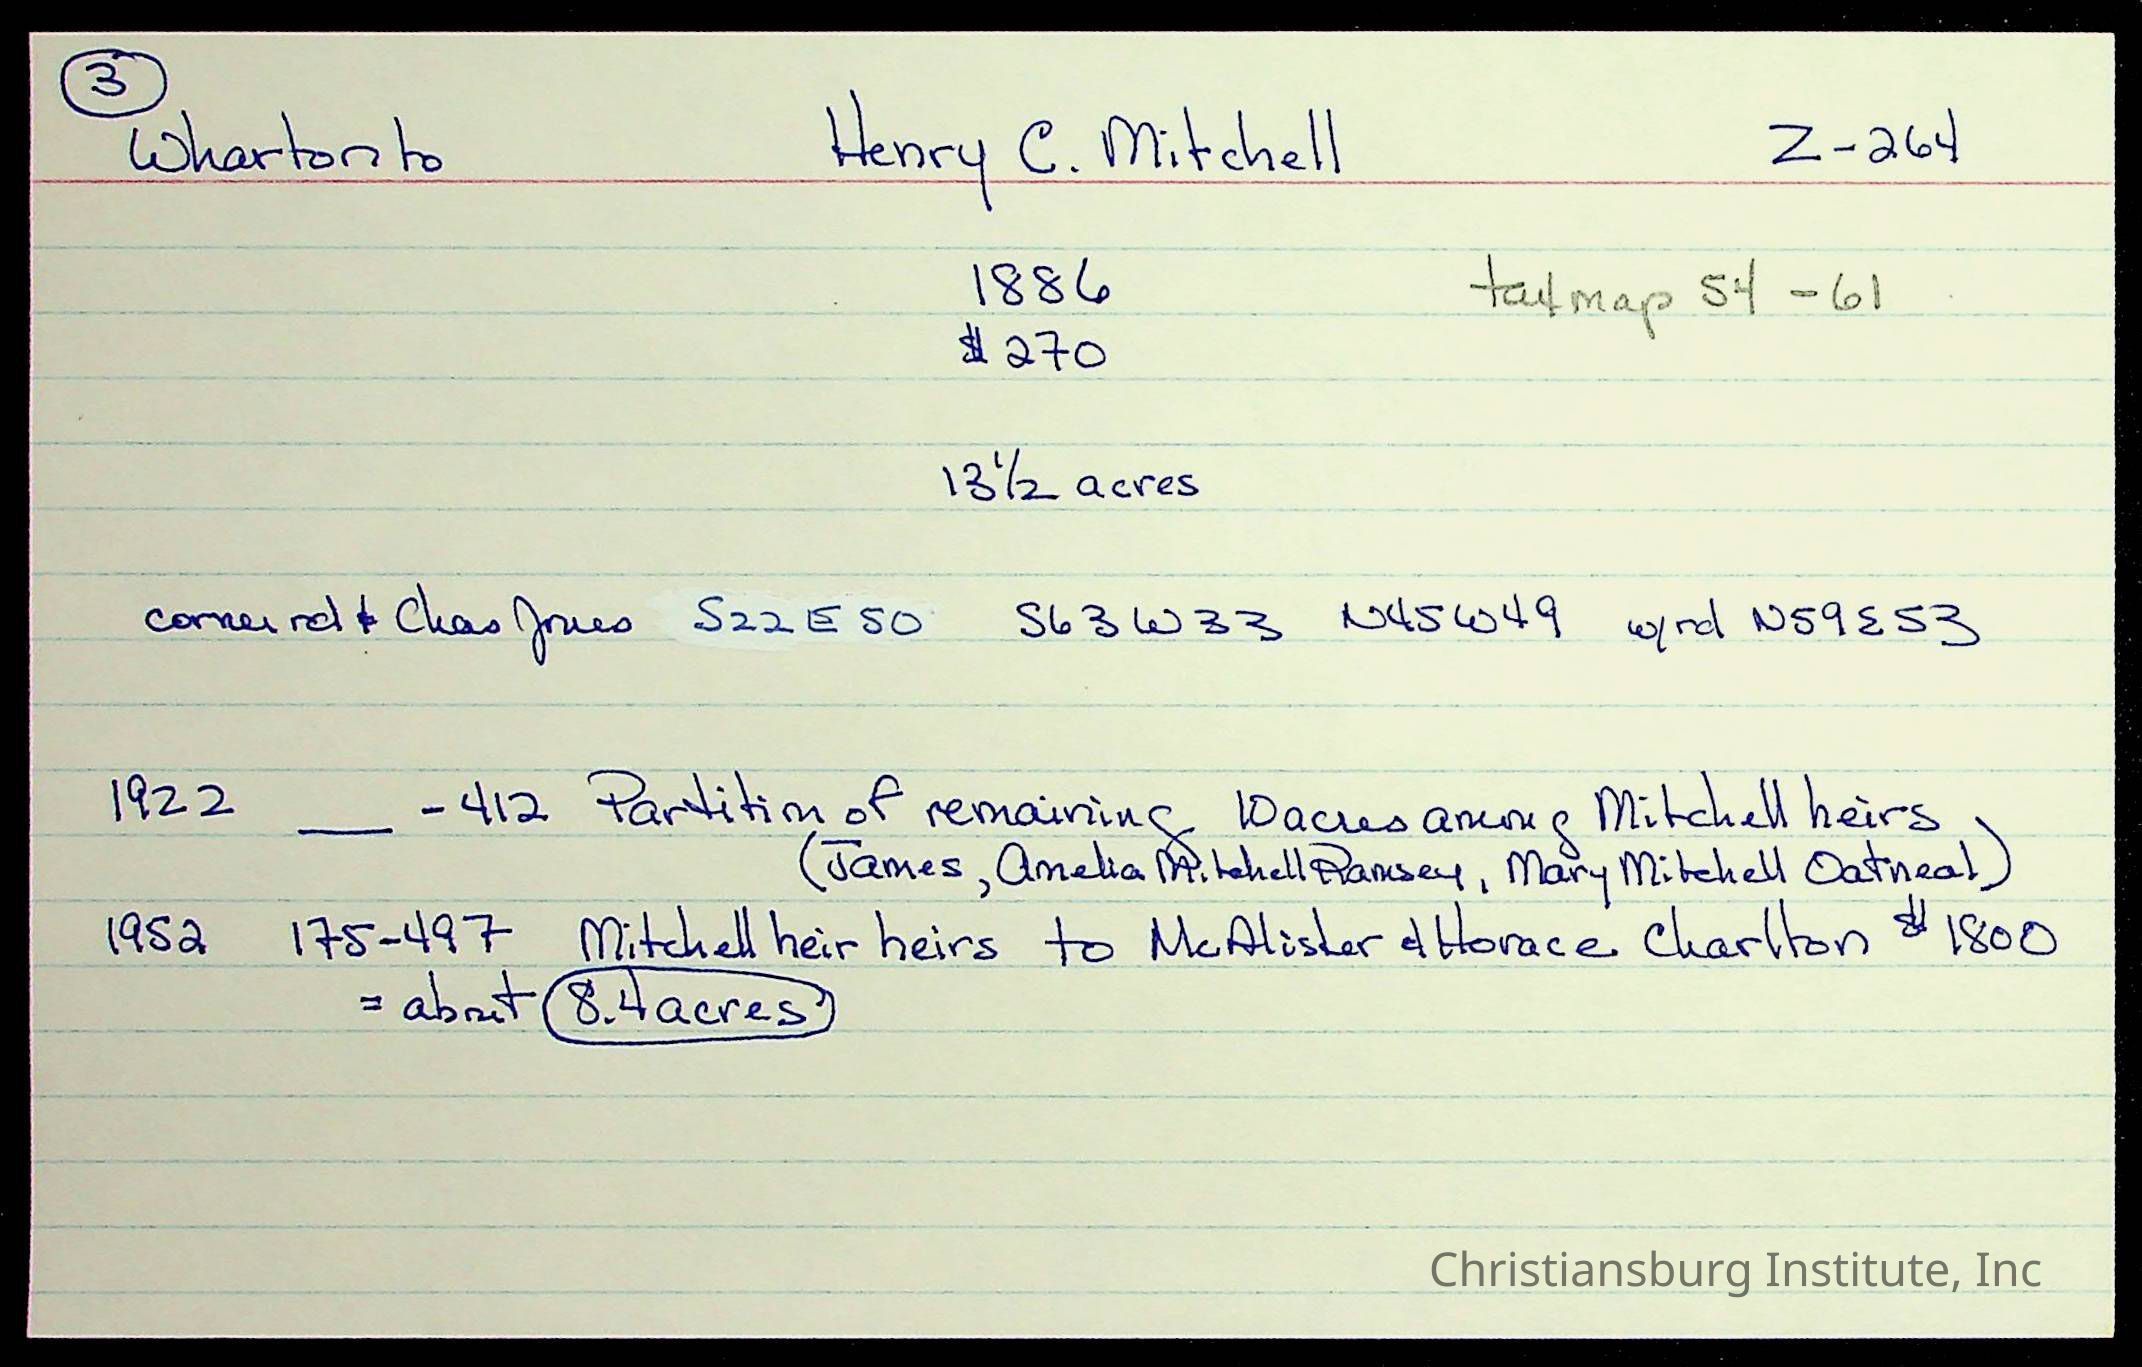 3
Wharton to Henry C. Mitchell Z-264
1886 taxmap 54-61
$270
13 1/2 acres
corner rd & Chas Jones S22E50 S63W33 N45W49 w/rd N59E53
1922 ___ -412 Partition of remaining 10 acres among Mitchell heirs
(James, Amelia Mitchell Ramsey, Mary Mitchell Oatneal)
1952 175-497 Mitchell heir heirs to McAlister & Horace Charlton $1800
= about 8.4 acres
Christiansburg Institute, Inc